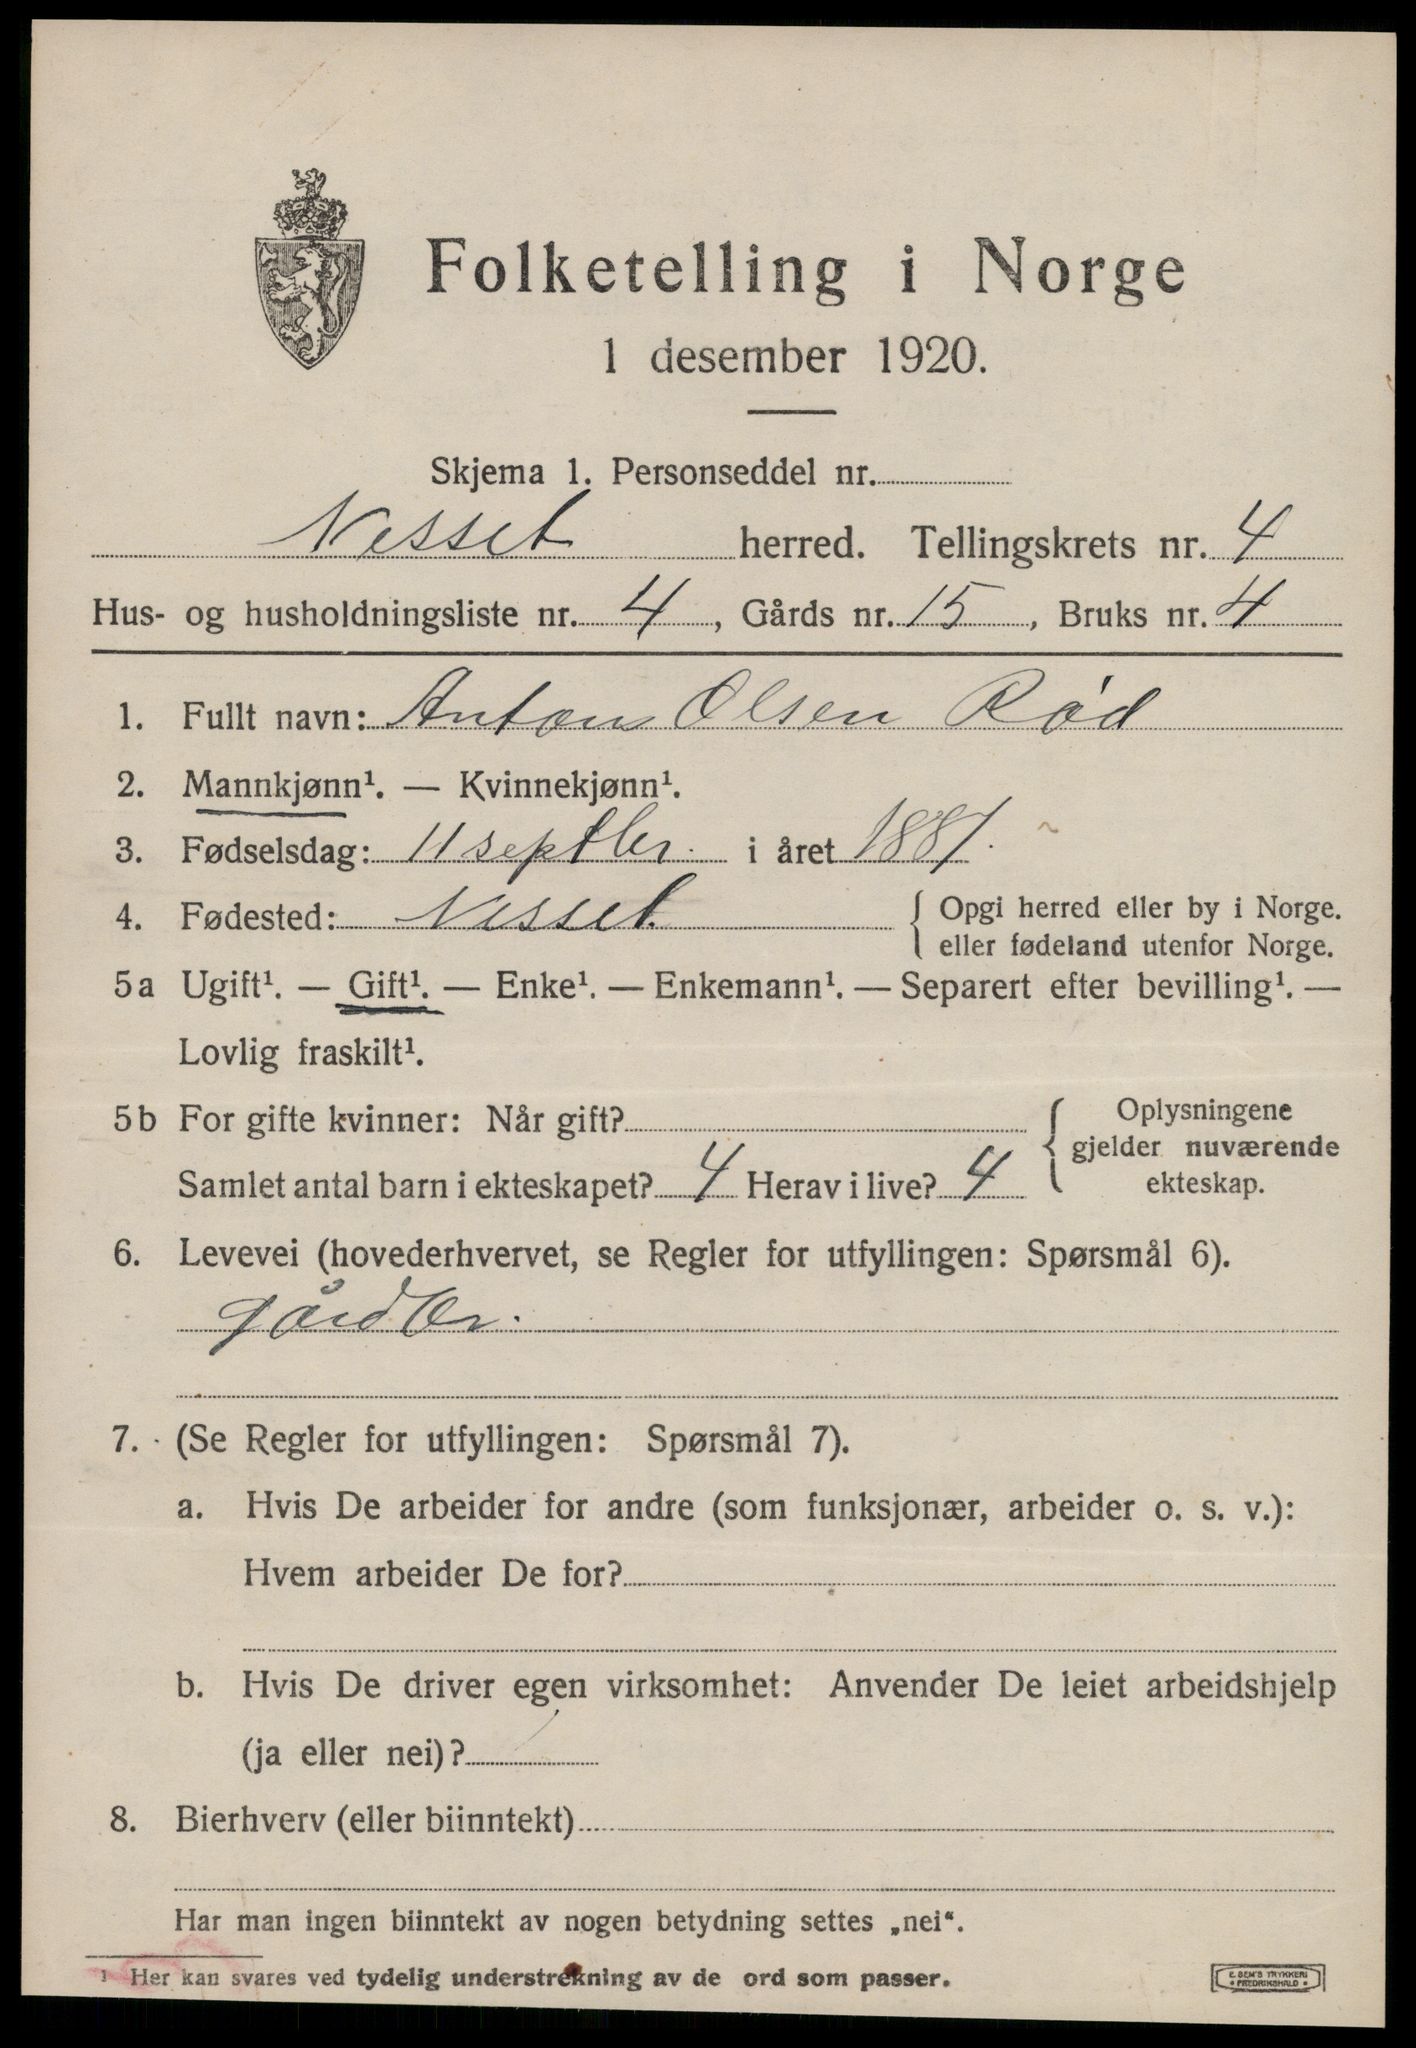 Folketelling i Norge
1 desember 1920.
Skjema 1. Personseddel nr.
Nesset herred. Tellingskrets nr. 4
Hus- og husholdningsliste nr. 4, Gårds nr. 15, Bruks nr. 4
1. Fullt navn: Anton Olsen Rød
2. Mannkjønn¹. — Kvinnekjønn¹.
3. Fødselsdag: 11 septbr. i året 1881.
4. Fødested: Nesset. { Opgi herred eller by i Norge.
eller fødeland utenfor Norge.
5a Ugift¹. — Gift¹. — Enke¹. — Enkemann¹. — Separert efter bevilling¹. —
Lovlig fraskilt¹.
5b For gifte kvinner: Når gift?
Samlet antal barn i ekteskapet? 4 Herav i live? 4
{ Oplysningene
gjelder nuværende
ekteskap.
6. Levevei (hovederhvervet, se Regler for utfyllingen: Spørsmål 6).
7. (Se Regler for utfyllingen: Spørsmål 7).
a. Hvis De arbeider for andre (som funksjonær, arbeider o. s. v.):
Hvem arbeider De for?
b. Hvis De driver egen virksomhet: Anvender De leiet arbeidshjelp
(ja eller nei)?
8. Bierhverv (eller biinntekt)
Har man ingen biinntekt av nogen betydning settes „nei“.
¹ Her kan svares ved tydelig understrekning av de ord som passer.
E. SEM'S TRYKKERI
• FREDRIKSHALD •